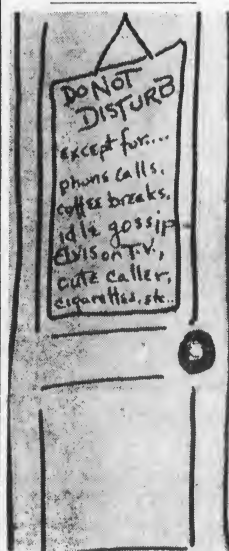 DO NOT
DISTURB
except for....
phone calls,
coffee breaks,
idle gossip
Elvis on T.V.,
cute caller,
cigarettes, etc..